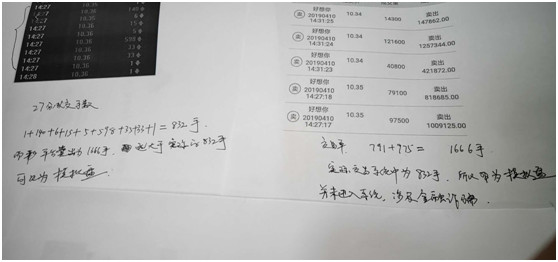 14:27 10.36 140
14:27 10.36 6
14:27 10.35 15
14:27 10.36 5
14:27 10.36 598
14:27 10.36 33
14:27 10.36 33
14:27 10.36 1
14:28 10.36
27分成交手数
1+140+6+15+5+598+33+33+1=832手.
平台卖出为1666手. 远大于实际的832手
可认为模拟盘
卖 好想你 20190410 14:31:25 10.34 14300 卖出 147862.00
卖 好想你 20190410 14:31:24 10.34 121600 卖出 1257344.00
卖 好想你 20190410 14:31:23 10.34 40800 卖出 421872.00
卖 好想你 20190410 14:27:18 10.35 79100 卖出 818685.00
卖 好想你 20190410 14:27:17 10.35 97500 卖出 1009125.00
交易单 791+975= 1666手
实际交易系统中为832手. 所以即为模拟盘
并未进入系统, 涉及金融诈骗.